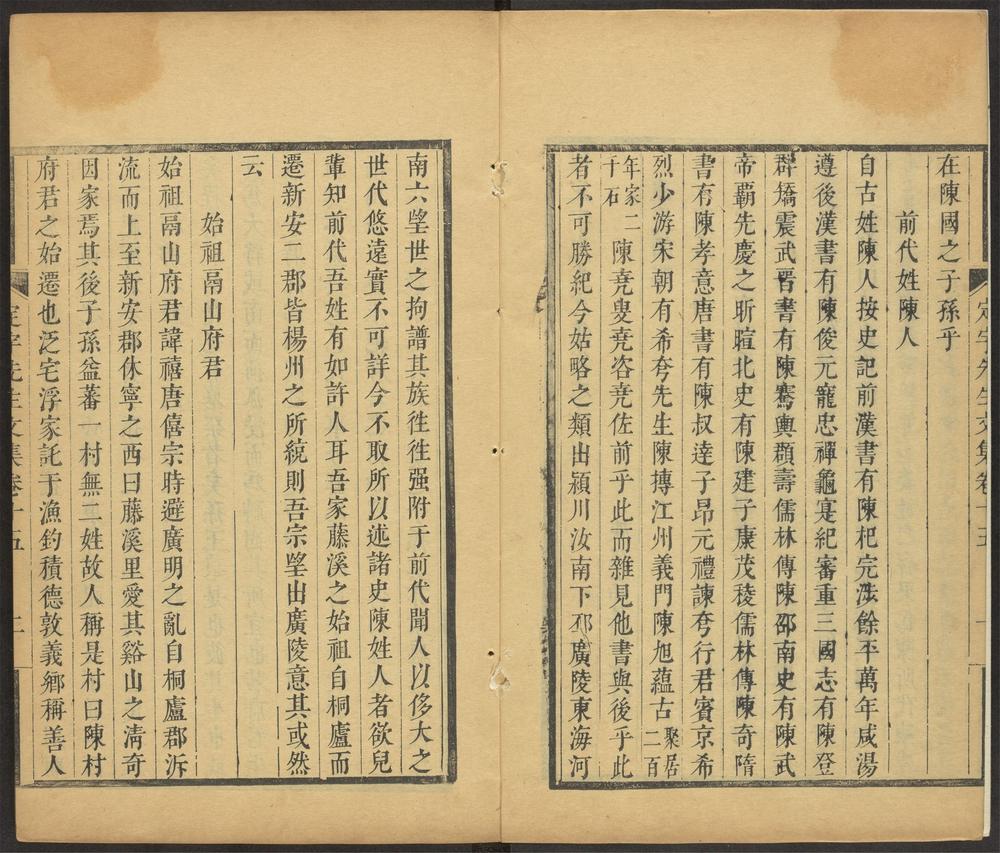 在陳國之子孫乎
前代姓陳人
自古姓陳人按史記前漢書有陳杞完涉餘平萬年咸湯
遵後漢書有陳俊元寵忠禪龜寔紀審重三國志有陳登
群矯震武晋書有陳騫輿頵壽儒林傳陳邵南史有陳武
帝覇先慶之昕暄北史有陳建子康茂稜儒林傳陳奇隋
書有陳孝意唐書有陳叔達子昂元禮諫夸行君賓京希
烈少游宋朝有希夸先生陳摶江州義門陳旭蘊古聚居二百
年家二千石陳堯叟堯咨堯佐前乎此而雜見他書與後乎此
者不可勝紀今姑略之類出潁川汝南下邳廣陵東海河
南六望世之拘譜其族徃徃强附于前代聞人以侈大之
世代悠遠實不可詳今不取所以述諸史陳姓人者欲兒
輩知前代吾姓有如許人耳吾家藤溪之始祖自桐廬而
遷新安二郡皆楊州之所統則吾宗望出廣陵意其或然
云
始祖鬲山府君
始祖鬲山府君諱禧唐僖宗時避廣明之亂自桐廬郡泝
流而上至新安郡休寧之西曰藤溪里愛其谿山之清奇
因家焉其後子孫益蕃一村無二姓故人稱是村曰陳村
府君之始遷也泛宅浮家託于漁釣積德敦義鄉稱善人
定宇先生文集卷十五 二